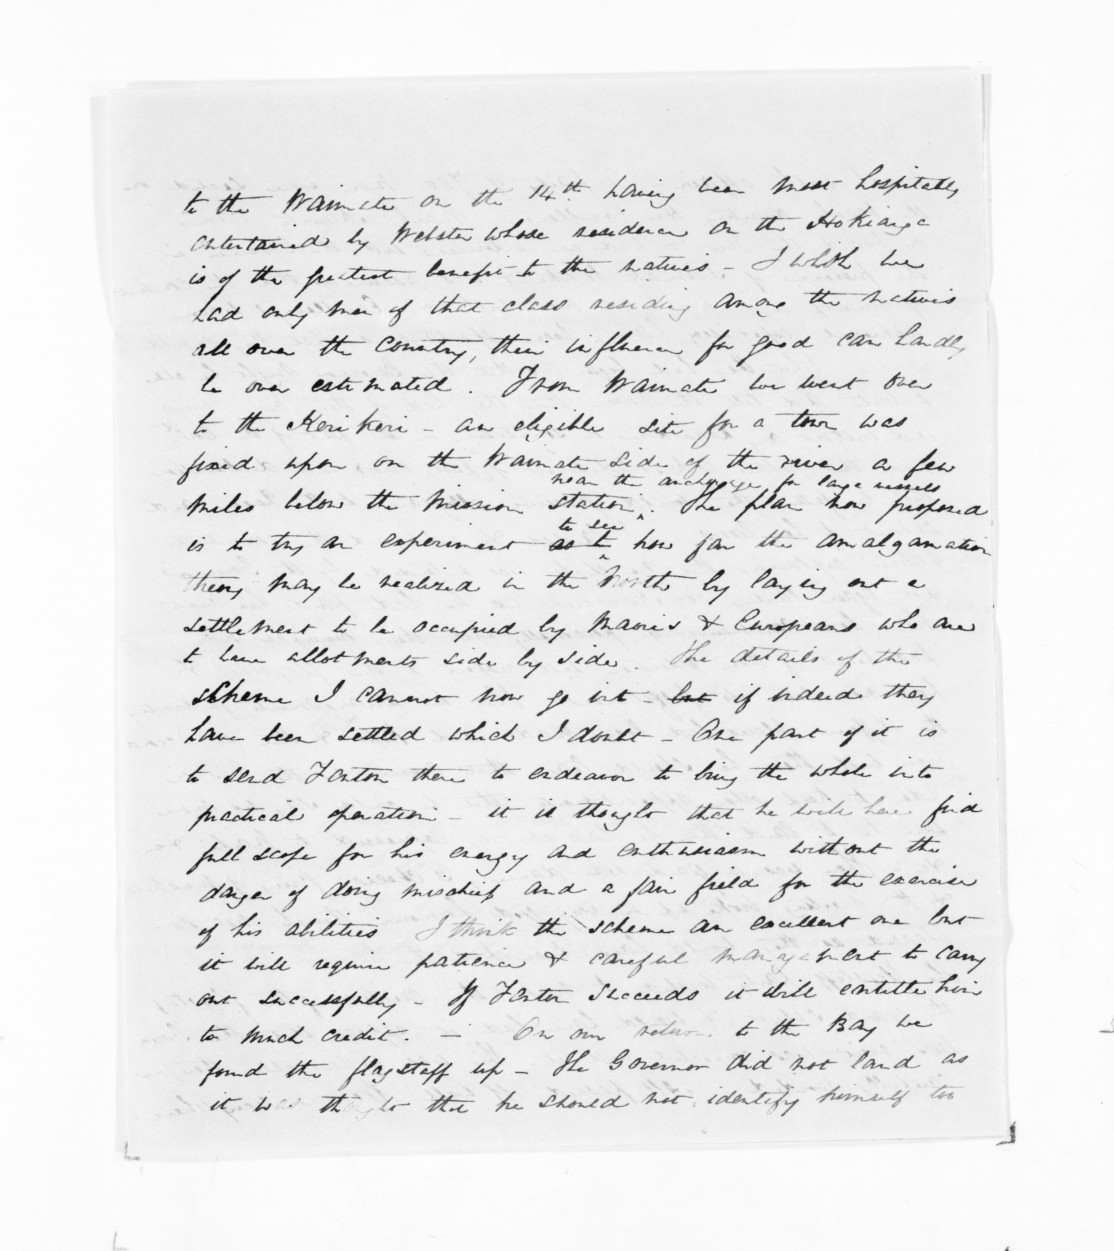 to the Waimate on the 14th. having been most hospitably
entertained by Webster whose residence on the Hokianga
is of the greatest benefit to the natives - I wish we
had only men of that class residing among the natives
all over the country, their influence for good can hardly
be over estimated. From Waimate we went over
to the Keri Keri - an eligible site for a town was
fixed upon on the Waimate side of the river a few
near the anchorage for large vessels
miles below the mission station. The plan now proposed
to see
is to try an experiment as to how far the amalgamation
theory may be realized in the North by laying out a
settlement to be occupied by Maoris & Europeans who are
to have allotments side by side. The details of the
scheme I cannot now go into - but if indeed they
have been settled which I doubt - One part of it is
to send Fenton there to endeavor to bring the whole into
practical operation - it is thought that he will here find
full scope for his energy and enthusiasm without the
danger of doing mischief and a fair field for the exercise
of his abilities I think the scheme an excellent one but
it will require patience & careful management to carry
out successfully - If Fenton succeeds it will entitle him
to much credit. - On our return to the Bay we
found the flagstaff up - The Governor did not land as
it was thought that he should not identify himself too